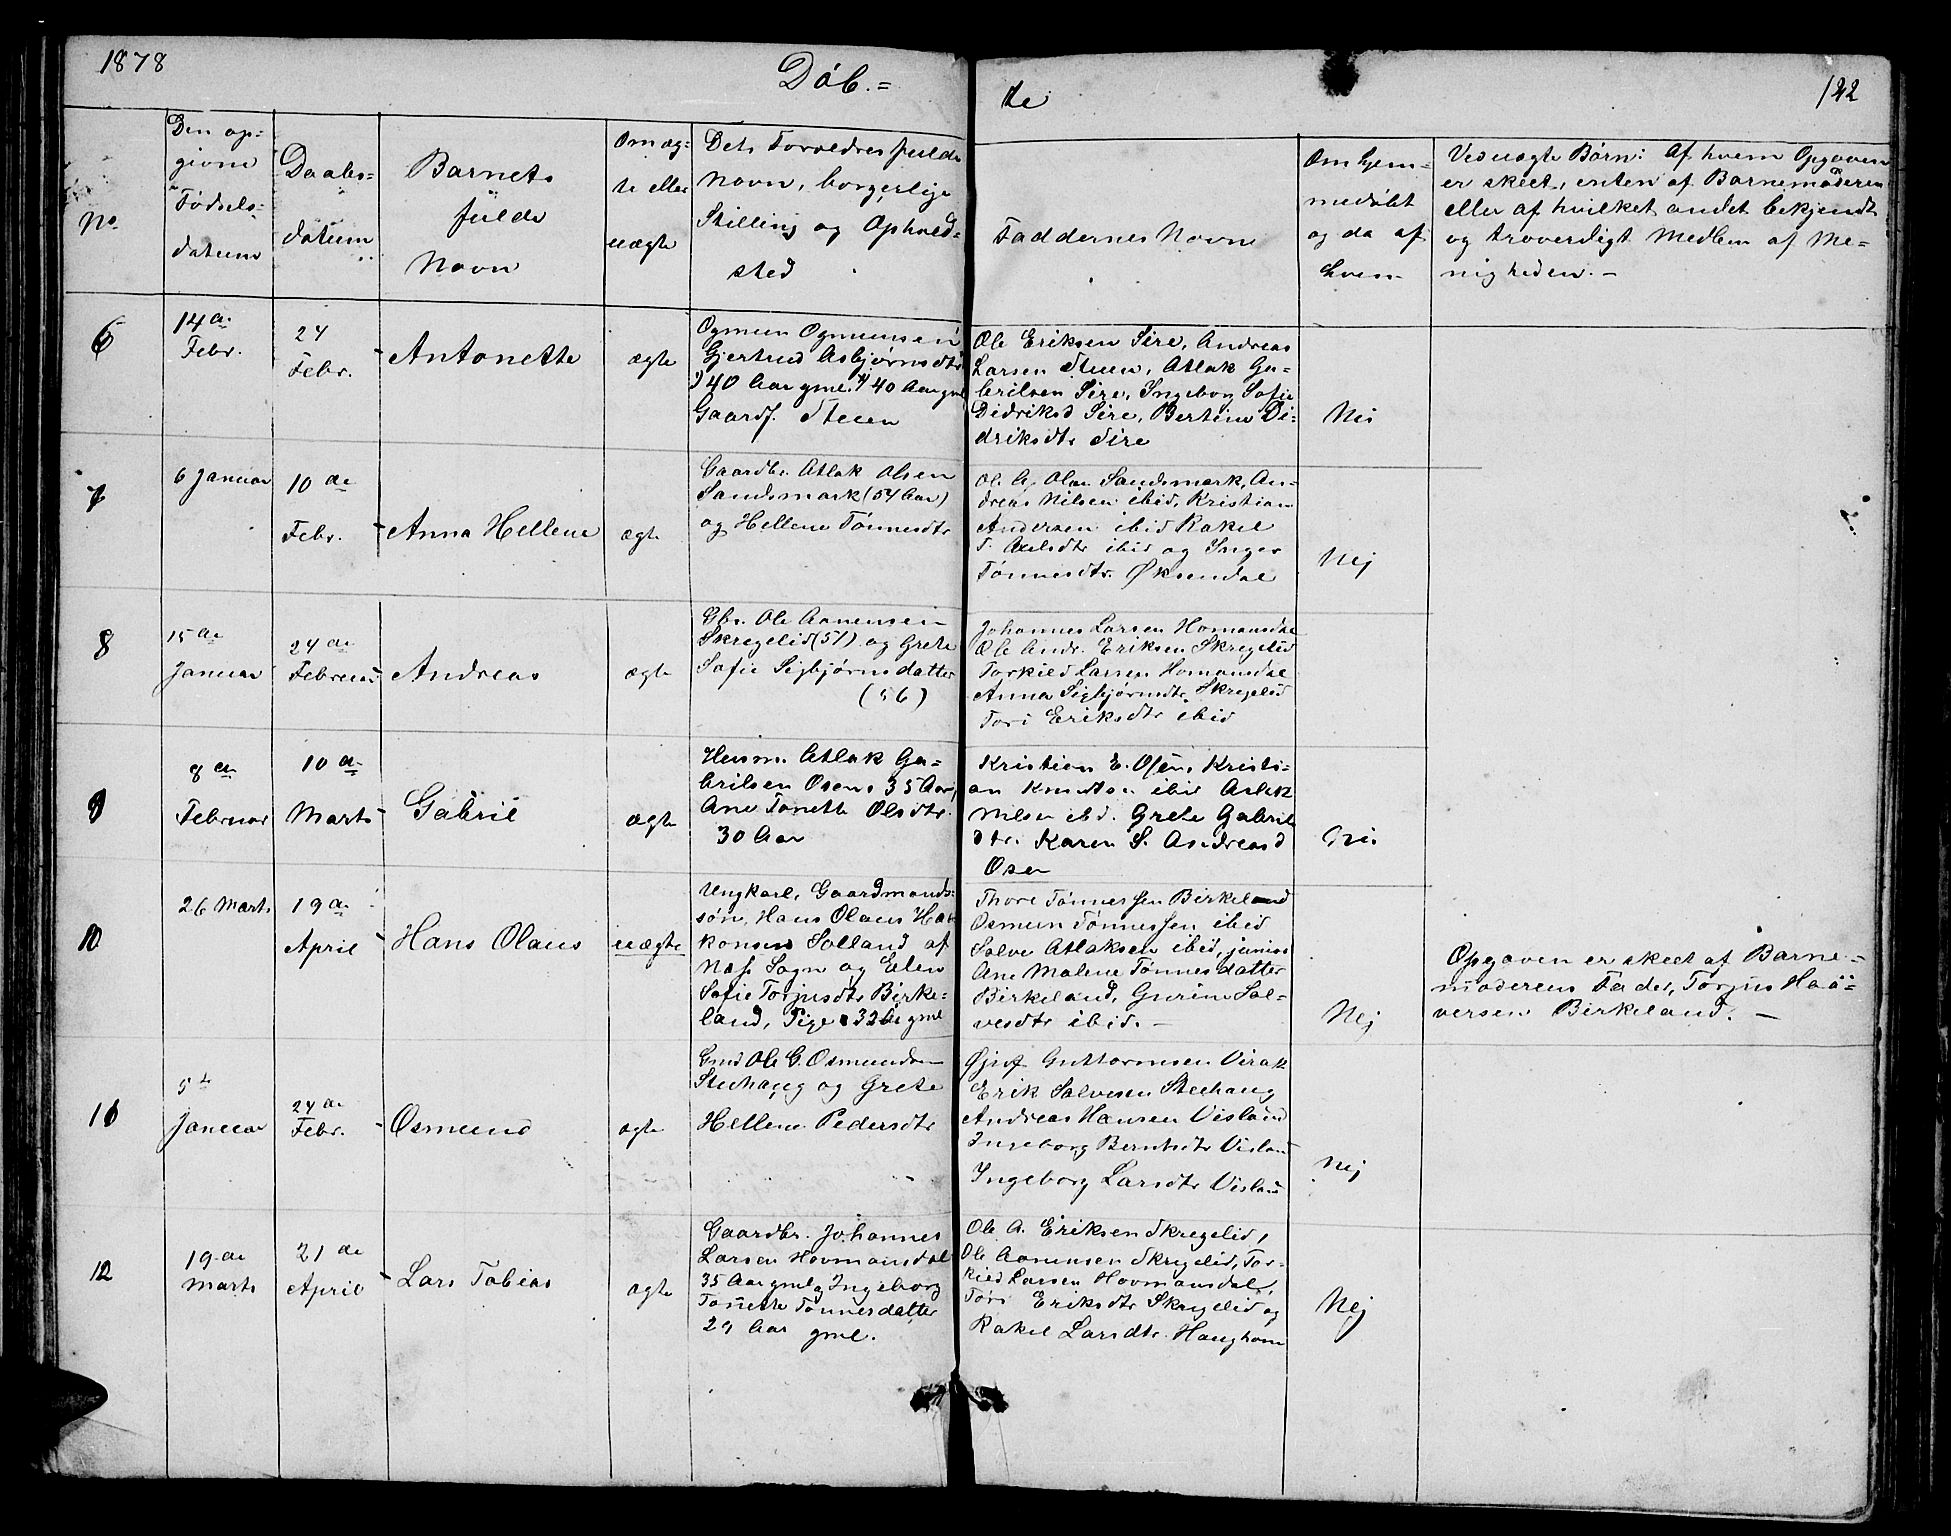 1878
Døb.=
te
122
No
Den op=
givne
Fødsels=
datum
Daabs=
datum
Barnets
fulde
Navn
Om æg=
te eller
uægte
Dets Forældres fulde
Navn, borgerlige
Stilling og Ophold=
sted
Faddernes Navn
Om hjem=
medøbt
og da af
hvem
Ved uægte Børn: Af hvem Opgaven
er skeet, enten af Barnemoderen
eller af hvilket andet bekjendt
og troværdigt Medlem af Me=
nigheden.—
6
14 de
Febr.
24
Febr.
Antonette
ægte
Ogmun Ogmunsen
Gjertrud Asbjørnsdtr
40 Aar gml. 40 Aar gml
Gaardf. Stuen
Ole Eriksen Sire, Andreas
Larsen Stuen, Atlak Ga=
brilsen Sire, Ingeborg Sofie
Didriksd Sire, Bertine Di=
driksdtr Sire
Nei
7
6 Januar
10 de
Febr.
Anna Hellene
ægte
Gaardbr. Atlak Olsen
Sandsmark (54 Aar)
og Hellene Tønnesdtr
Ole A. Olsen Sandsmark, An=
dreas Nilsen ibid, Kristian
Andersen ibid Rakel
T. Axelsdtr ibid og Inger
Tønnesdtr. Øksendal
Nej
8
15 de
Januar
24 de
Februar
Andreas
ægte
Gbr. Ole Aanensen
Skregelid (51) og Grete
Sofie Sigbjørnsdatter
(56)
Johannes Larsen Homansdal
Ole Andr. Eriksen Skregelid
Torkild Larsen Homansdal
Anna Sigbjørnsdtr. Skregelid
Tori Eriksdtr ibid
9
8 de
Februar
10 de
Marts
Gabriel
ægte
Husm. Atlak Ga=
brilsen Osen, 35 Aar,
Ane Tonette Olsdtr.
30 Aar
Kristian E. Osen, Kristi=
an Knudsen ibid Aslak
Nilsen ibd. Grete Gabriels
dtr. Karen S. Andreasd
Osen
Nei
10
26 Marts
19 de
April
Hans Olaus
uægte
Ungkarl, Gaardmands=
søn, Hans Olaus Haa=
konsen Solland af
Næs Sogn og Elen
Sofie Torjusdtr Birke=
land, Pige 32 Aar gml
Thore Tønnessen Birkeland
Osmun Tønnessen ibid
Salve Atlaksen ibid, junior
Ane Malene Tønnesdatter
Birkeland, Gurine Sal=
vesdtr ibid.—
Nej
Opgaven er skeet af Barne=
moderens Fader, Torjus Haa=
versen Birkeland.—
11
5 te
Januar
24 de
Febr.
Osmund
ægte
Gmd Ole G. Osmundsen
Steehaug og Grete
Hellene Pedersdtr
Guttormsen Virak
Erik Salvesen Steehaug
Andreas Hansen Visland
Ingeborg Berntsdtr Visland
Ingeborg Larsdtr Visland
Nej
12
19 de
Marts
21 de
April
Lars Tobias
ægte
Gaardbr. Johannes
Larsen Hovmansdal
35 Aar gml og Ingeborg
Tonette Tønnesdatter
29 Aar gml.
Ole A. Eriksen Skregelid,
Ole Aanensen Skregelid, Tor=
kild Larsen Hovmansdal,
Tori Eriksdtr Skregelid og
Rakel Larsdtr. Haughom
Nej